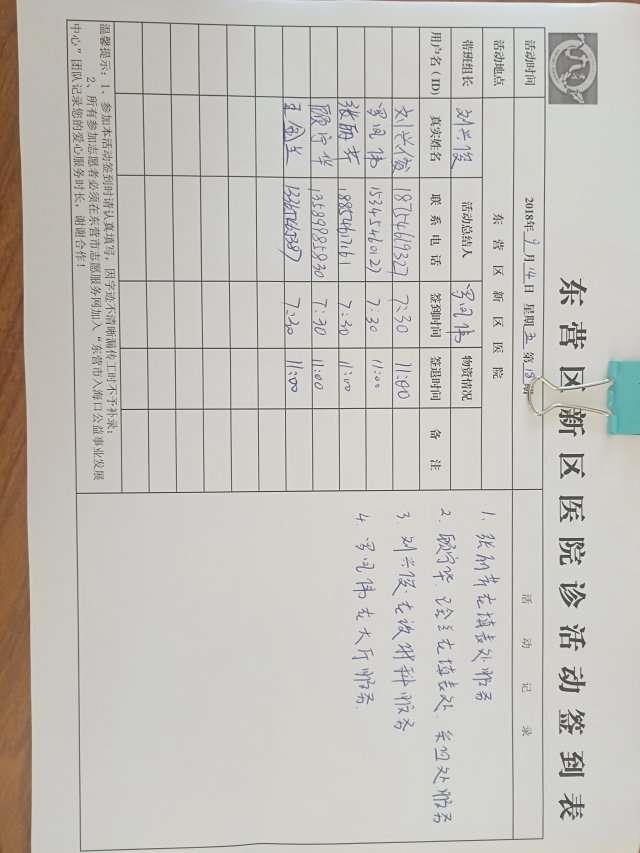 东营区新区医院诊活动签到表
活动时间 2018年9月14日 星期五 第18期 活动记录
活动地点 东营区新区医院
带班组长 刘兴俊 活动总结人 罗凤伟 物资情况
用户名(ID) 真实姓名 联系电话 签到时间 签退时间 备注
刘兴俊 18754619327 7:30 11:00
罗凤伟 15345460127 7:30 11:00
张丽芹 18854617661 7:30 11:00
顾守华 13589985830 7:30 11:00
王金兰 7:30 11:00
1、张丽芹在填表处服务
2、顾守华、王金兰在填表处、采血处服务
3、刘兴俊在放材料服务
4、罗凤伟在大厅服务.
温馨提示:1、参加本活动签到时请认真填写,因字迹不清晰漏传工时不予补录;
2、所有参加志愿者必须在东营市志愿服务网加入“东营市入海口公益事业发展
中心”团队记录您的爱心服务时长,谢谢合作!